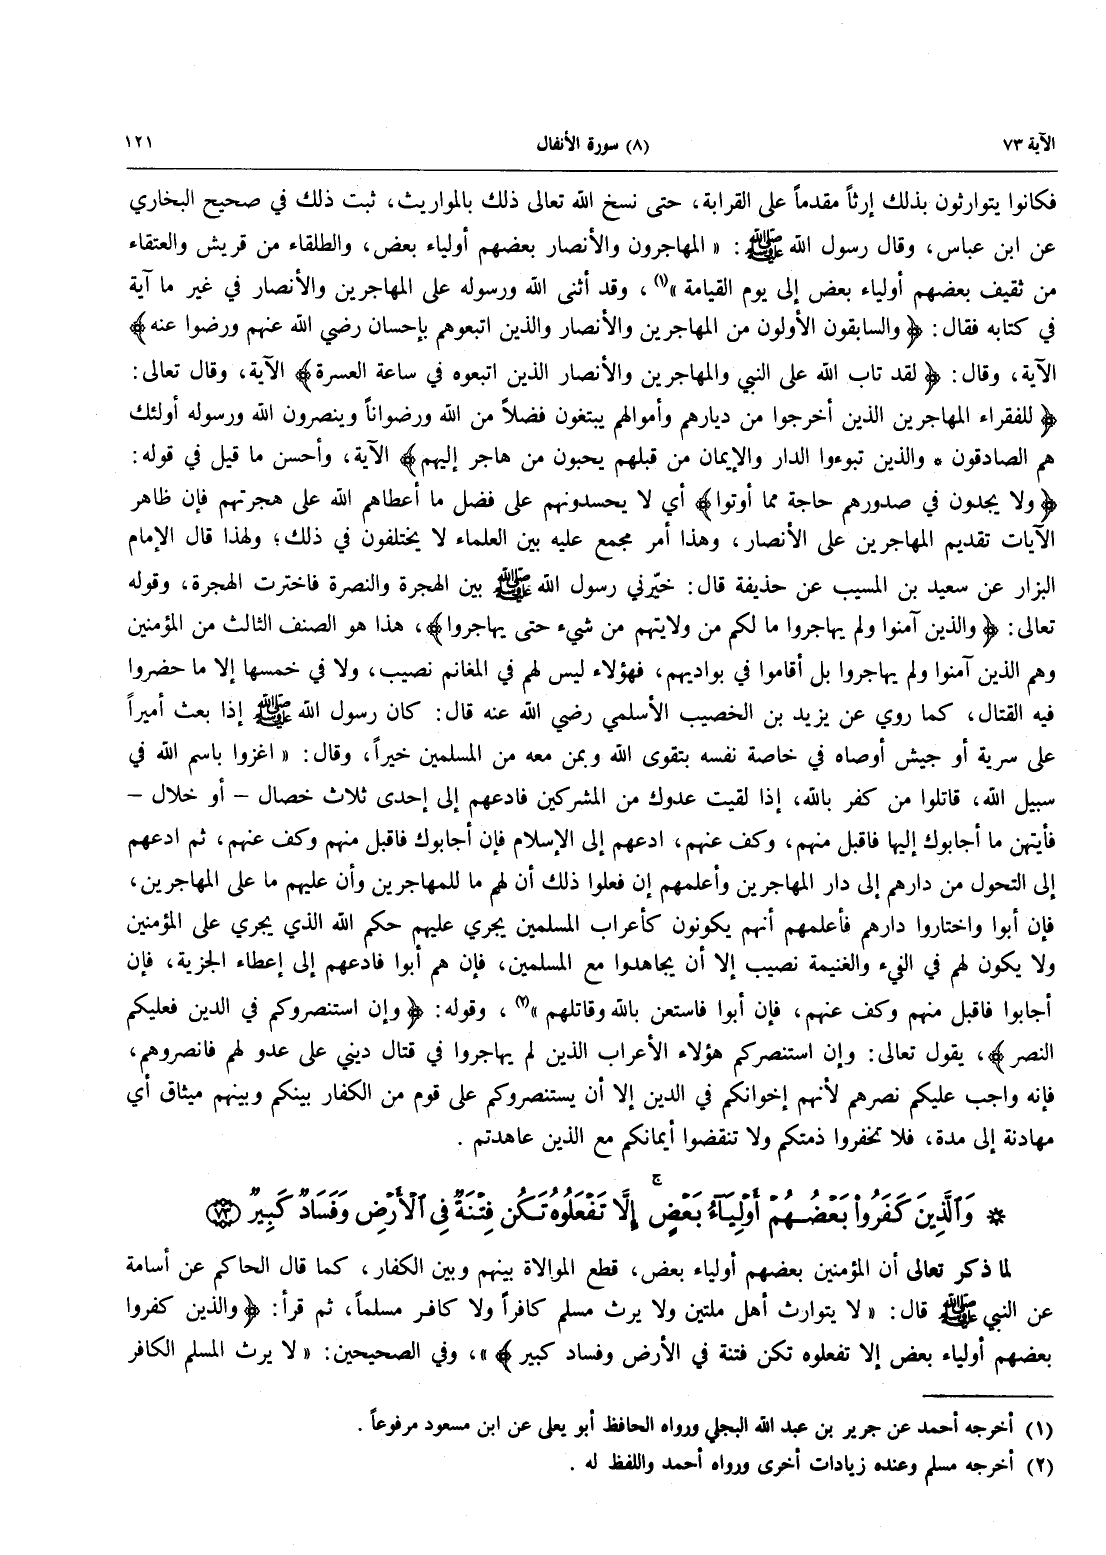 الآية ٧٣
(٨) سورة الأنفال
١٢١
فكانوا يتوارثون بذلك إرثاً مقدماً على القرابة، حتى نسخ الله تعالى ذلك بالمواريث، ثبت ذلك في صحيح البخاري
عن ابن عباس، وقال رسول الله ﷺ: « المهاجرون والأنصار بعضهم أولياء بعض، والطلقاء من قريش والعتقاء
من ثقيف بعضهم أولياء بعض إلى يوم القيامة »(١)، وقد أثنى الله ورسوله على المهاجرين والأنصار في غير ما آية
في كتابه فقال: ﴿ والسابقون الأولون من المهاجرين والأنصار والذين اتبعوهم بإحسان رضي الله عنهم ورضوا عنه ﴾
الآية، وقال: ﴿ لقد تاب الله على النبي والمهاجرين والأنصار الذين اتبعوه في ساعة العسرة ﴾ الآية، وقال تعالى:
﴿ للفقراء المهاجرين الذين أخرجوا من ديارهم وأموالهم يبتغون فضلاً من الله ورضواناً وينصرون الله ورسوله أولئك
هم الصادقون * والذين تبوءوا الدار والإيمان من قبلهم يحبون من هاجر إليهم ﴾ الآية، وأحسن ما قيل في قوله:
﴿ ولا يجدون في صدورهم حاجة مما أوتوا ﴾ أي لا يحسدونهم على فضل ما أعطاهم الله على هجرتهم فإن ظاهر
الآيات تقديم المهاجرين على الأنصار، وهذا أمر مجمع عليه بين العلماء لا يختلفون في ذلك؛ ولهذا قال الإمام
البزار عن سعيد بن المسيب عن حذيفة قال: خيّرني رسول الله ﷺ بين الهجرة والنصرة فاخترت الهجرة، وقوله
تعالى: ﴿ والذين آمنوا ولم يهاجروا ما لكم من ولايتهم من شيء حتى يهاجروا ﴾، هذا هو الصنف الثالث من المؤمنين
وهم الذين آمنوا ولم يهاجروا بل أقاموا في بواديهم، فهؤلاء ليس لهم في المغانم نصيب، ولا في خمسها إلا ما حضروا
فيه القتال، كما روي عن يزيد بن الخصيب الأسلمي رضي الله عنه قال: كان رسول الله ﷺ إذا بعث أميراً
على سرية أو جيش أوصاه في خاصة نفسه بتقوى الله وبمن معه من المسلمين خيراً، وقال: « اغزوا باسم الله في
سبيل الله، قاتلوا من كفر بالله، إذا لقيت عدوك من المشركين فادعهم إلى إحدى ثلاث خصال – أو خلال –
فأيتهن ما أجابوك إليها فاقبل منهم، وكف عنهم، ادعهم إلى الإسلام فإن أجابوك فاقبل منهم وكف عنهم، ثم ادعهم
إلى التحول من دارهم إلى دار المهاجرين وأعلمهم إن فعلوا ذلك أن لهم ما للمهاجرين وأن عليهم ما على المهاجرين،
فإن أبوا واختاروا دارهم فأعلمهم أنهم يكونون كأعراب المسلمين يجري عليهم حكم الله الذي يجري على المؤمنين
ولا يكون لهم في الفيء والغنيمة نصيب إلا أن يجاهدوا مع المسلمين، فإن هم أبوا فادعهم إلى إعطاء الجزية، فإن
أجابوا فاقبل منهم وكف عنهم، فإن أبوا فاستعن بالله وقاتلهم »(٢)، وقوله: ﴿ وإن استنصروكم في الدين فعليكم
النصر ﴾، يقول تعالى: وإن استنصركم هؤلاء الأعراب الذين لم يهاجروا في قتال ديني على عدو لهم فانصروهم،
فإنه واجب عليكم نصرهم لأنهم إخوانكم في الدين إلا أن يستنصروكم على قوم من الكفار بينكم وبينهم ميثاق أي
مهادنة إلى مدة، فلا تخفروا ذمتكم ولا تنقضوا أيمانكم مع الذين عاهدتم .
* وَٱلَّذِينَ كَفَرُواْ بَعْضُهُمْ أَوْلِيَآءُ بَعْضٍ ۚ إِلَّا تَفْعَلُوهُ تَكُن فِتْنَةٌ فِي ٱلْأَرْضِ وَفَسَادٌ كَبِيرٌ ﴿٧٣﴾
لما ذكر تعالى أن المؤمنين بعضهم أولياء بعض، قطع الموالاة بينهم وبين الكفار، كما قال الحاكم عن أسامة
عن النبي ﷺ قال: « لا يتوارث أهل ملتين ولا يرث مسلم كافراً ولا كافر مسلماً، ثم قرأ: ﴿ والذين كفروا
بعضهم أولياء بعض إلا تفعلوه تكن فتنة في الأرض وفساد كبير ﴾ »، وفي الصحيحين: « لا يرث المسلم الكافر
(١) أخرجه أحمد عن جرير بن عبد الله البجلي ورواه الحافظ أبو يعلى عن ابن مسعود مرفوعاً .
(٢) أخرجه مسلم وعنده زيادات أخرى ورواه أحمد واللفظ له .